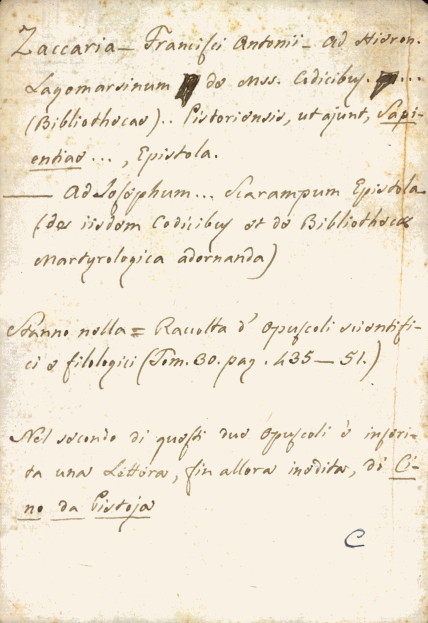 Zaccaria — Francisci Antonii — ad Hieron.
Lagomarsinum de Mss. Codicibus. ...
(Bibliothecae) .. Pistoriensis, ut ajunt, Sapi-
entiae ..., Epistola.
—— Ad Josephum ... Scarampum Epistola
(de iisdem Codicibus et de Bibliotheca
Martyrologica adornanda)
Stanno nella = Raccolta d' opuscoli scientifi-
ci e filologici (Tom. 30. pag. 435 — 51.)
Nel secondo di questi due opuscoli è inseri-
ta una Lettera, fin allora inedita, di Ci-
no da Pistoja
C